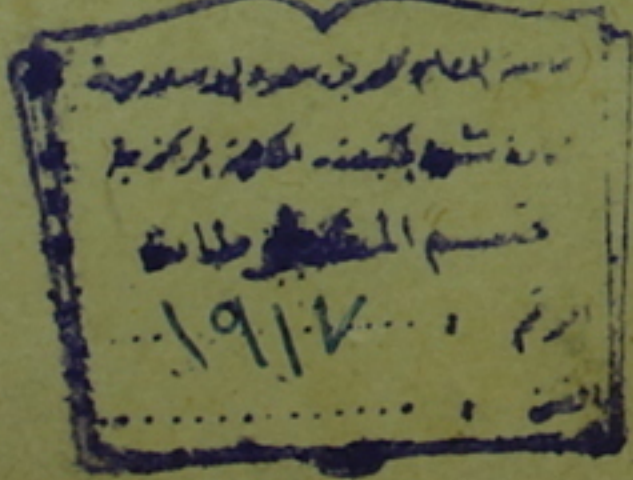 جامعة الإمام محمد بن سعود الإسلامية
شئون المكتبات المكتبة المركزية
قسم المخطوطات
الرقم : ١٩١٧
الفن :